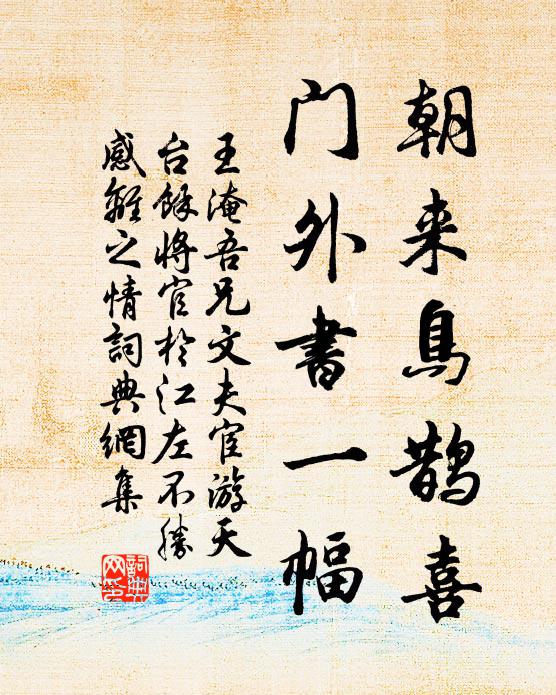 朝来鳥鹊喜
门外書一幅
王淹吾兄文夫宦游天
台餘将官於江左不勝
感離之情詞典網集
詞典网